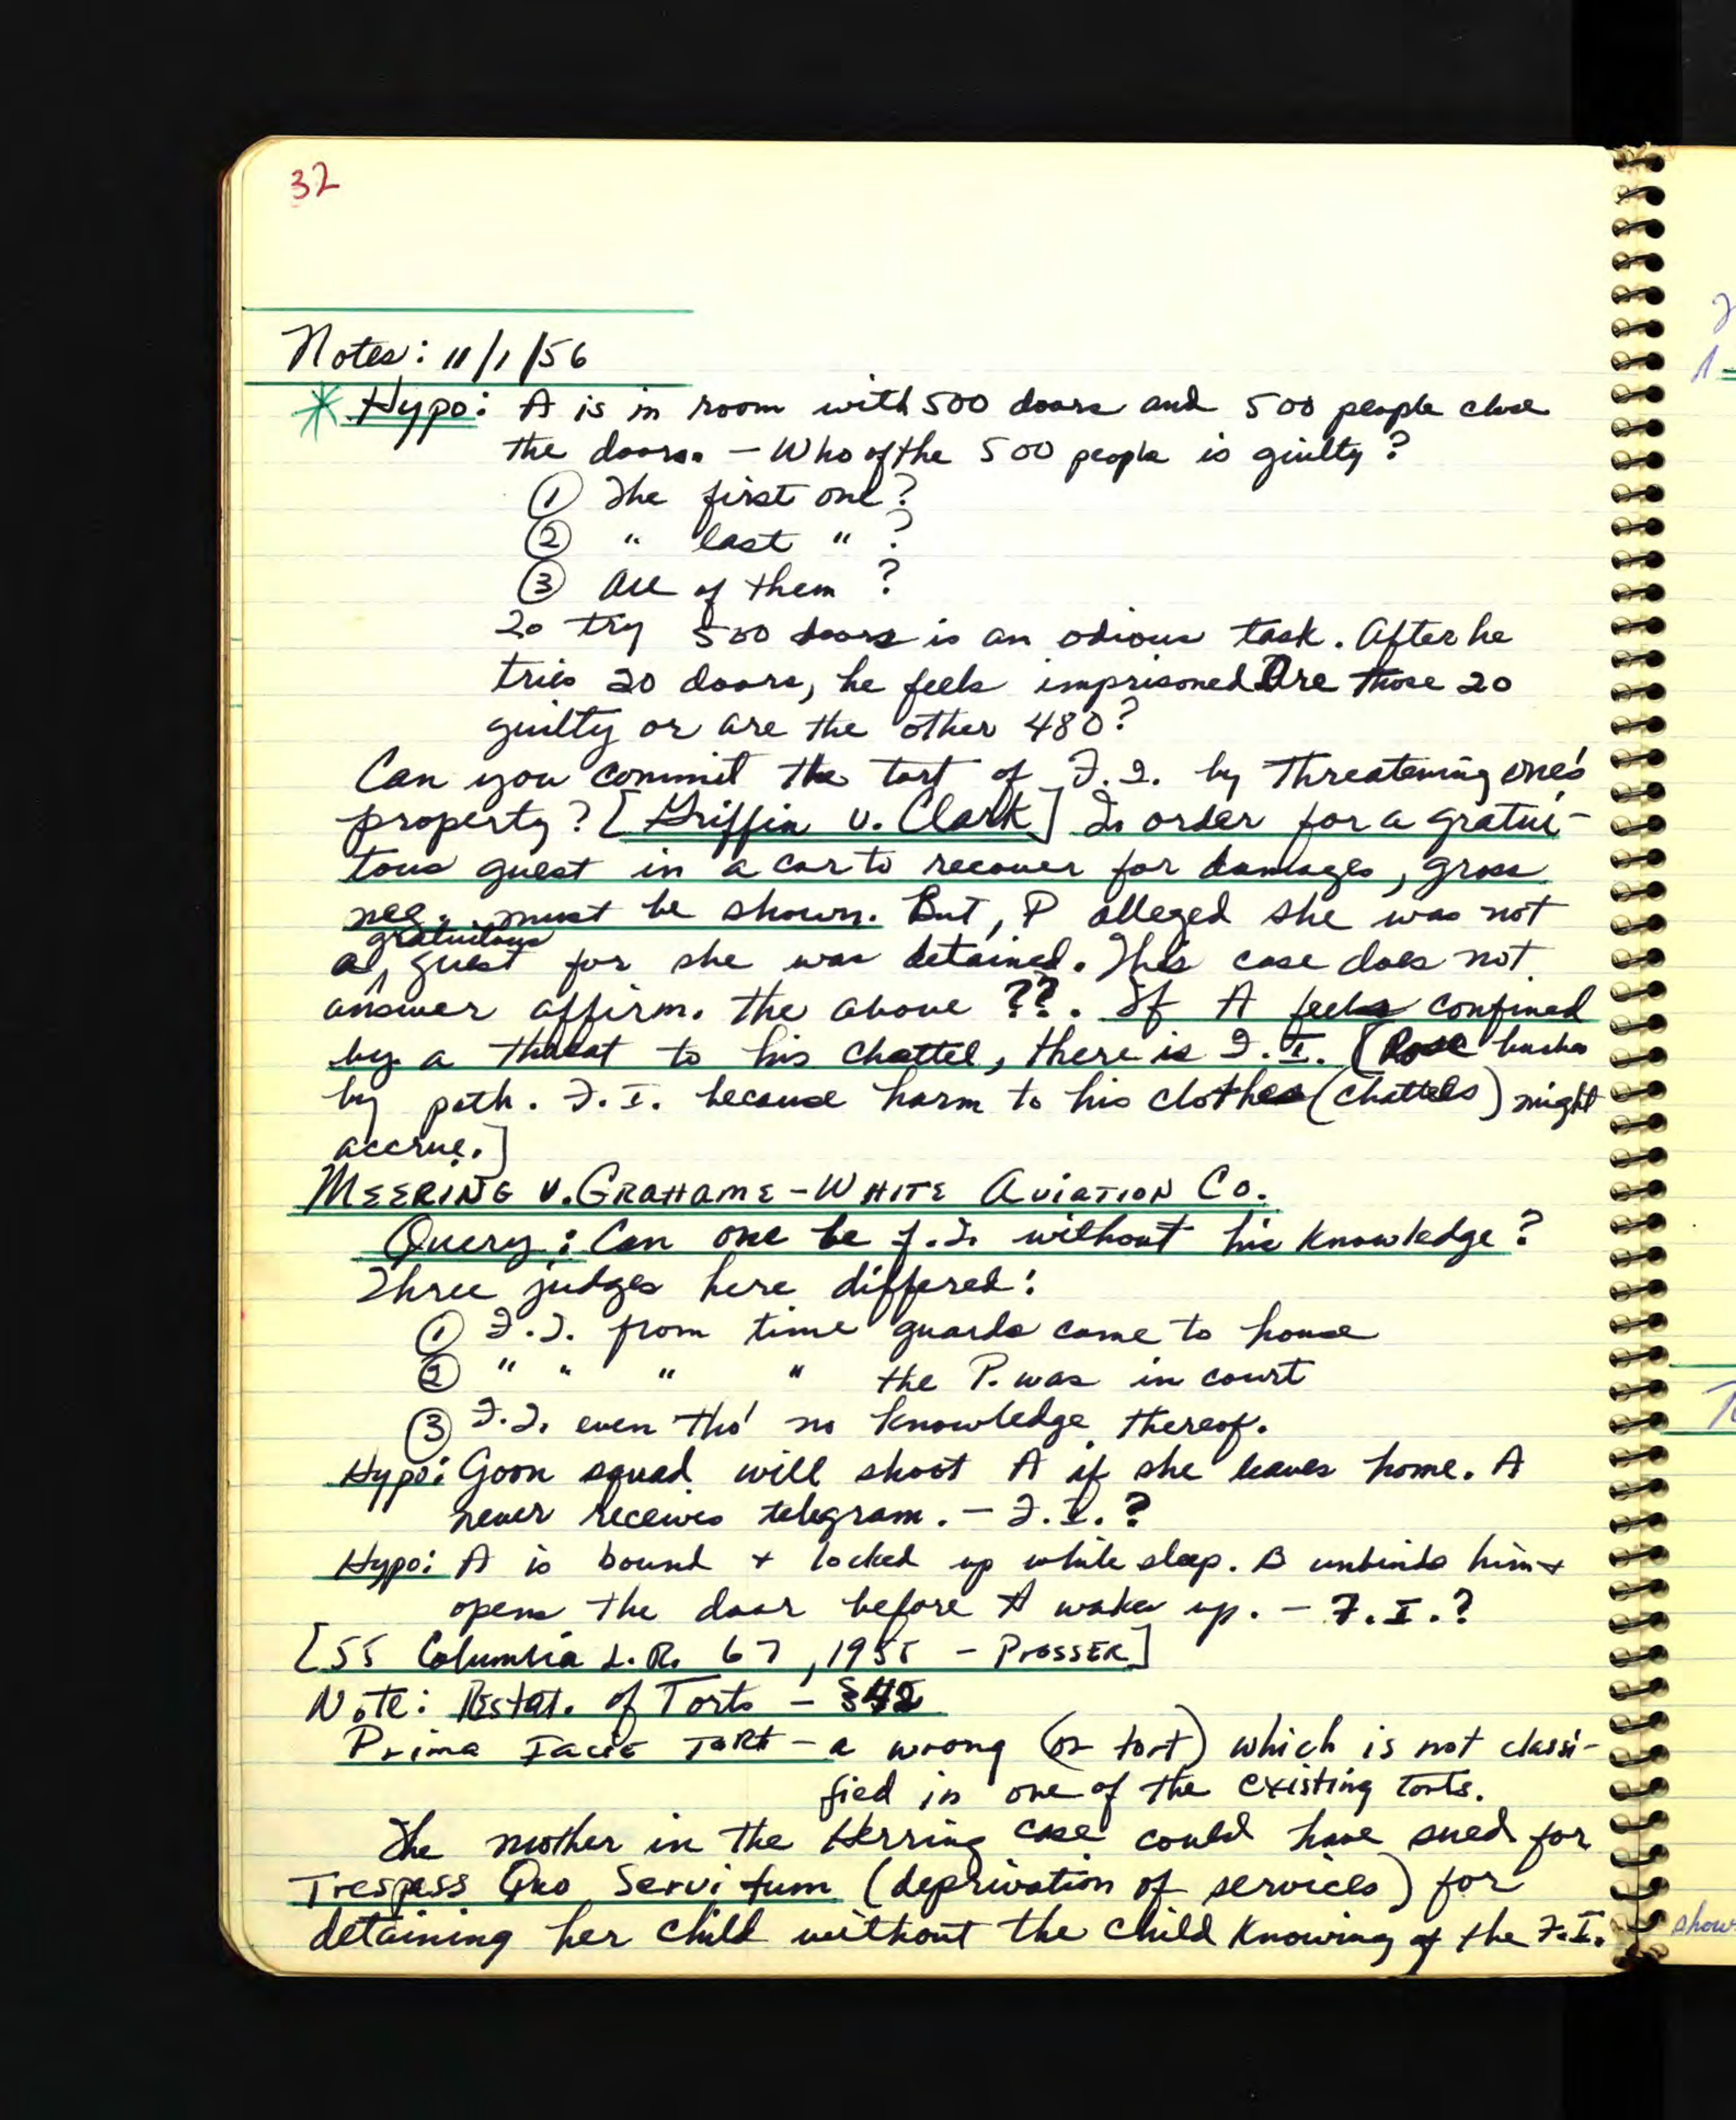 32
Notes: 11/1/56
* Hypo: A is in room with 500 doors and 500 people close
the doors. — Who of the 500 people is guilty?
① The first one?
② " last " ?
③ All of them ?
To try 500 doors is an odious task. After he
tries 20 doors, he feels imprisoned. Are those 20
guilty or are the other 480?
Can you commit the tort of F.I. by threatening one's
property? [Griffin v. Clark] In order for a gratui-
tous guest in a car to recover for damages, gross
neg. must be shown. But, P alleged she was not
a gratuitous guest for she was detained. This case does not
answer affirm. the above ??. If A feels confined
by a threat to his chattel, there is F.I. (Rose bushes
by path. F.I. because harm to his clothes (chattels) might
accrue.]
MEERING V. GRAHAME-WHITE AVIATION CO.
Query: Can one be f.I. without his knowledge?
Three judges here differed:
① F.I. from time guards came to house
② " " " " the P. was in court
③ F.I. even tho' no knowledge thereof.
Hypo: Goon squad will shoot A if she leaves home. A
never receives telegram. — F.I.?
Hypo: A is bound + locked up while sleep. B unbinds him +
opens the door before A wakes up. — F.I.?
[55 Columbia L.R. 67, 1955 — PROSSER]
Note: Restat. of Torts — §42
Prima Facie Tort — a wrong (or tort) which is not classi-
fied in one of the existing torts.
The mother in the Herring case could have sued for
Trespass Quo Servitum (deprivation of services) for
detaining her child without the child knowing of the F.I.
show